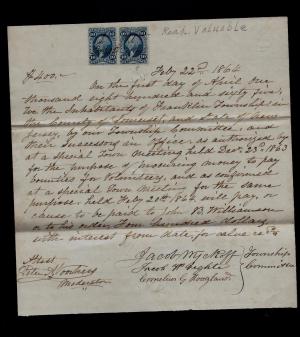 Real Valuable
$400.-
Feby 22nd 1864
On the first day of April One
thousand eight hundred and sixty five,
we the Inhabitants of Franklin Township in
the County of Somerset, and State of New
Jersey, by our Township Committee, and
their successors in Office, as authorized by
at a Special Town Meeting held Decr. 23rd 1863
for the purpose of procuring money to pay
bounties for Volunteers, and as confirmed
at a special Town Meeting for the same
purpose, held Feby 20th 1864, will pay, or
cause to be paid to John B. Williamson
or to his order, Four hundred Dollars
with interest from date, for value recd.
Jacob Wyckoff
Township
Committee
Attest
Peter Voorhees
Moderator
Cornelius Hoagland